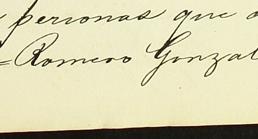 personas que
=Romero Gonzal